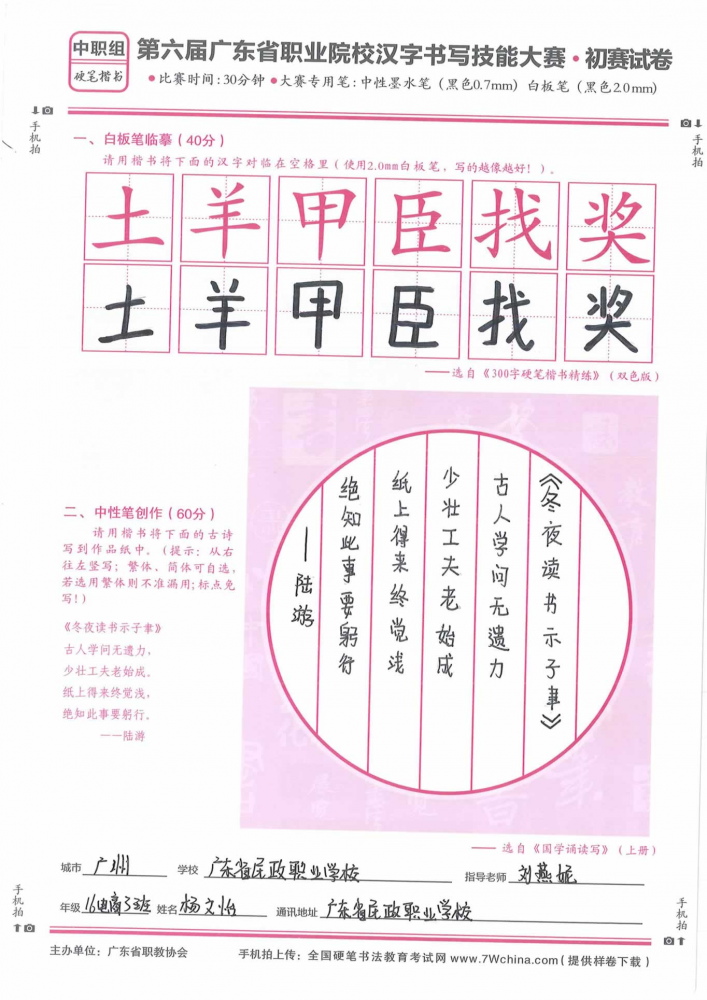 中职组
硬笔楷书
第六届广东省职业院校汉字书写技能大赛·初赛试卷
●比赛时间:30分钟 ●大赛专用笔:中性墨水笔(黑色0.7mm) 白板笔(黑色2.0mm)
手机拍
手机拍
一、白板笔临摹(40分)
请用楷书将下面的汉字对临在空格里(使用2.0mm白板笔,写的越像越好!)。
土羊甲臣找奖
土羊甲臣找奖
——选自《300字硬笔楷书精练》(双色版)
二、中性笔创作(60分)
请用楷书将下面的古诗
写到作品纸中。(提示:从右
往左竖写;繁体、简体可自选,
若选用繁体则不准漏用;标点免
写!)
《冬夜读书示子聿》
古人学问无遗力,
少壮工夫老始成。
纸上得来终觉浅,
绝知此事要躬行。
——陆游
《冬夜读书示子聿》
古人学问无遗力
少壮工夫老始成
纸上得来终觉浅
绝知此事要躬行
—陆游
——选自《国学诵读写》(上册)
城市 广州 学校 广东省民政职业学校 指导老师 刘燕妮
年级 16电商3班 姓名 杨文怡 通讯地址 广东省民政职业学校
手机拍
手机拍
主办单位:广东省职教协会 手机拍上传:全国硬笔书法教育考试网 www.7Wchina.com(提供样卷下载)